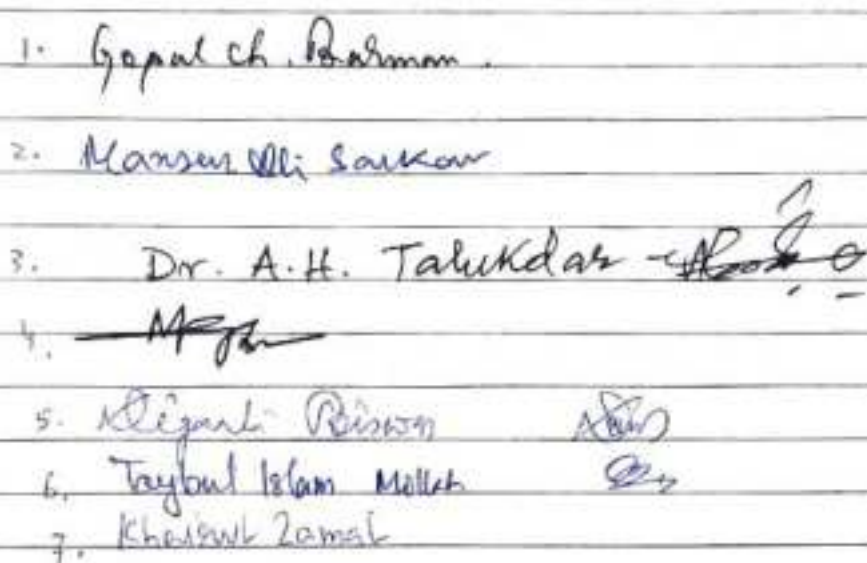 1. Gopal Ch. Barman.
2. Mansur Ali Sarkar
3. Dr. A.H. Talukdar
4.
5. Biswas
6. Taybul Islam Mollah
7. Khairul Zamal